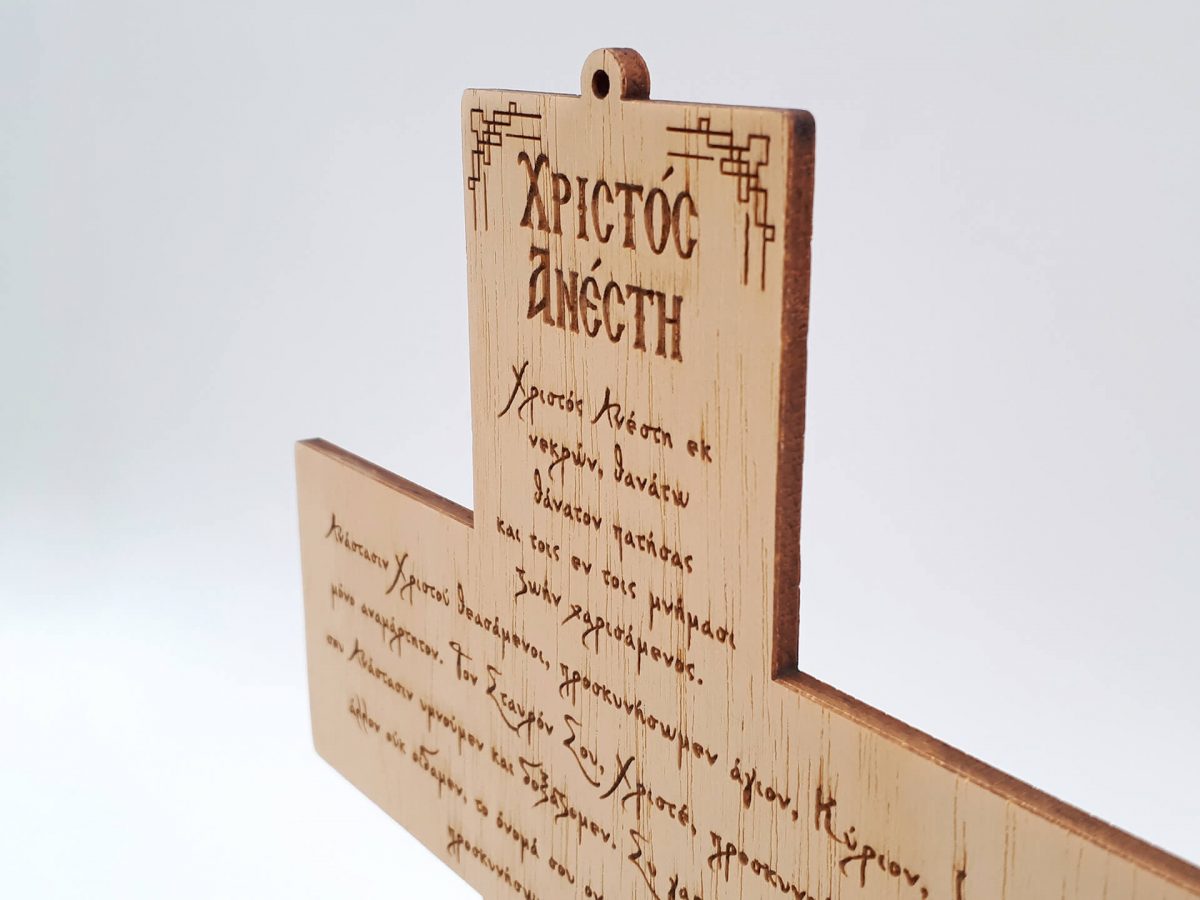 Χριστός
Ανέστη
Χριστός Ανέστη εκ
νεκρών, θανάτω
θάνατον πατήσας
και τοις εν τοις μνήμασι
ζωήν χαρισάμενος.
Ανάστασιν Χριστού θεασάμενοι, προσκυνήσωμεν άγιον, Κύριον,
μόνο αναμάρτητον. Τον Σταυρόν Σου, Χριστέ,
σου Ανάστασιν υμνούμεν και δοξάζομεν. Συ
άλλον ουκ οίδαμεν, το όνομά σου